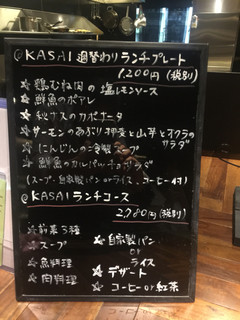 @KASAI 週替わりランチプレート
1,200円(税別)
☆鶏むね肉の塩レモンソース
☆鮮魚のポアレ
☆秋ナスのカポナータ
☆サーモンのあぶり押麦と山芋とオクラのサラダ
☆にんじんのご食製スープ
☆鮮魚のカルパッチョサラダ
(スープ・自家製パンorライス、コーヒー付)
@KASAI ランチコース
2,780円(税別)
☆前菜3種
☆スープ
☆魚料理
☆肉料理
☆自家製パン
or
ライス
☆デザート
☆コーヒーor紅茶